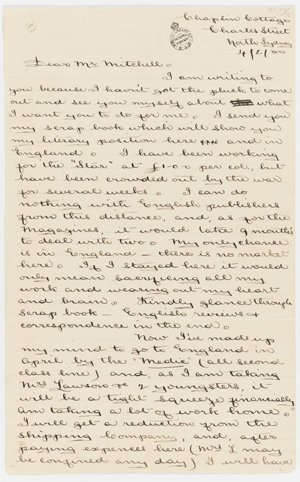 Chaplin Cottage
Charles Street
North Sydney
4/2/00
Dear Mr Mitchell.
I am writing to
you because I havn't got the pluck to come
out and see you myself about what
I want you to do for me. I send you
my scrap book which will show you
my literary position here and in
England. I have been working
for the "Star" at per col, but
have been crowded out by the war
for several weeks. I can do
nothing with English publishers
from this distance, and, as for the
Magazines, it would take 9 months
to deal with two. My only chance
is in England — there is no market
here. If I stayed here it would
only mean sacrificing all my
work and wearing out my heart
and brain. Kindly glance through
scrap book — English reviews &
correspondence in the end.
Now I've made up
my mind to go to England in
April by the "Medic" (all second
class line) and, as I am taking
Mrs Lawson & 2 youngsters, it
will be a tight squeeze financially
am taking a lot of work home.
I will get a reduction from the
shipping company, and, after
paying expences here (Mrs L may
be confined any day) I will have